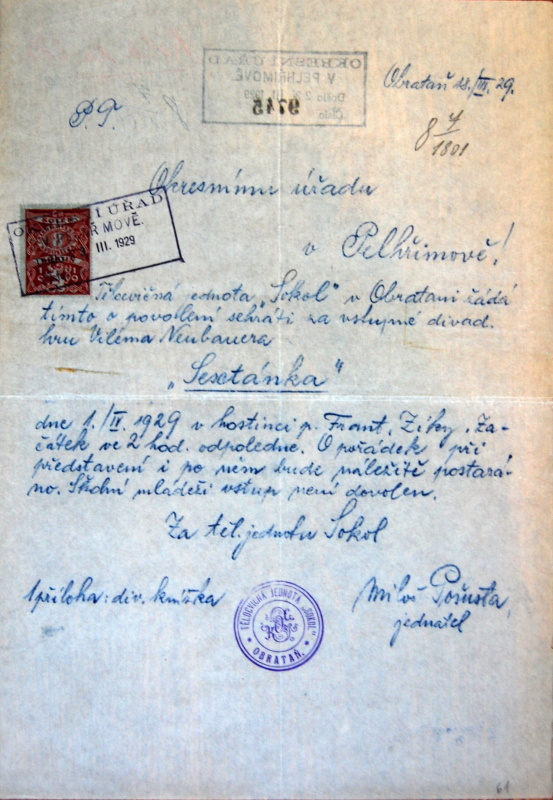 OKRESNÍ ÚŘAD
V PELHŘIMOVĚ
Došlo III. 1929
Číslo 9745
Obrataň 18./III. 29.
P. T.
8 4/1801
Okresnímu úřadu
v Pelhřimově!
8
I ÚŘAD
ŘIMOVĚ.
III. 1929
Tělocvičná jednota „Sokol" v Obratani žádá
tímto o povolení sehráti za vstupné divad.
hru Viléma Neubauera
„Sextánka"
dne 1./IV. 1929 v hostinci p. Frant. Ziky. Za-
čátek ve 2 hod. odpoledne. O pořádek při
představení i po něm bude náležitě postará-
no. Školní mládeži vstup není dovolen.
Za těl. jednotu Sokol
1 příloha: div. knížka
Miloš Pošusta,
jednatel
TĚLOCVIČNÁ JEDNOTA „SOKOL"
OBRATAŇ.
61